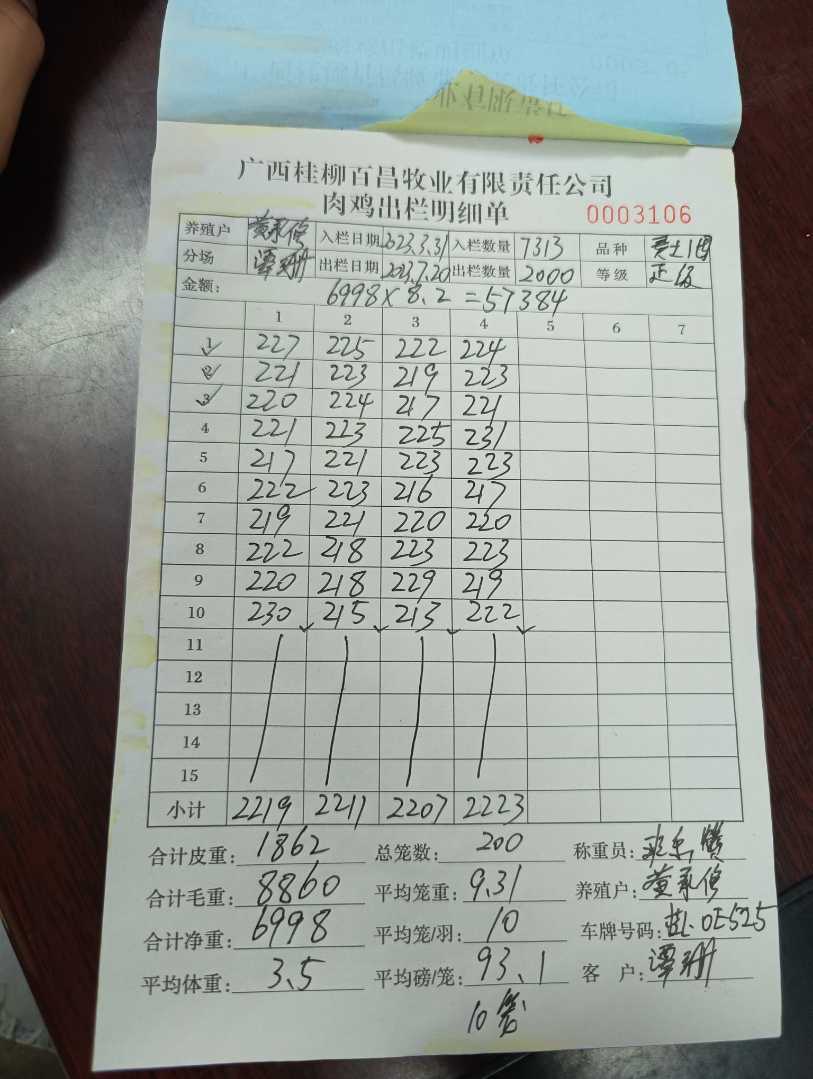 广西桂柳百昌牧业有限责任公司
肉鸡出栏明细单 0003106
养殖户 黄承修 入栏日期 2023.3.31 入栏数量 7313 品种
分场 谭珊 出栏日期 2023.7.20 出栏数量 2000 等级 正级
金额: 6998×8.2=57384
1 2 3 4 5 6 7
1 227 225 222 224
2 221 223 219 223
3 220 224 217 221
4 221 223 225 231
5 217 221 223 223
6 222 223 216 217
7 219 221 220 220
8 222 218 223 223
9 220 218 229 219
10 230 215 213 222
11
12
13
14
15
小计 2219 2211 2207 2223
合计皮重: 1862 总笼数: 200 称重员:
合计毛重: 8860 平均笼重: 9.31 养殖户: 黄承修
合计净重: 6998 平均笼/羽: 10 车牌号码: 桂L·0E525
平均体重: 3.5 平均磅/笼: 93.1 客户: 谭珊
10笼